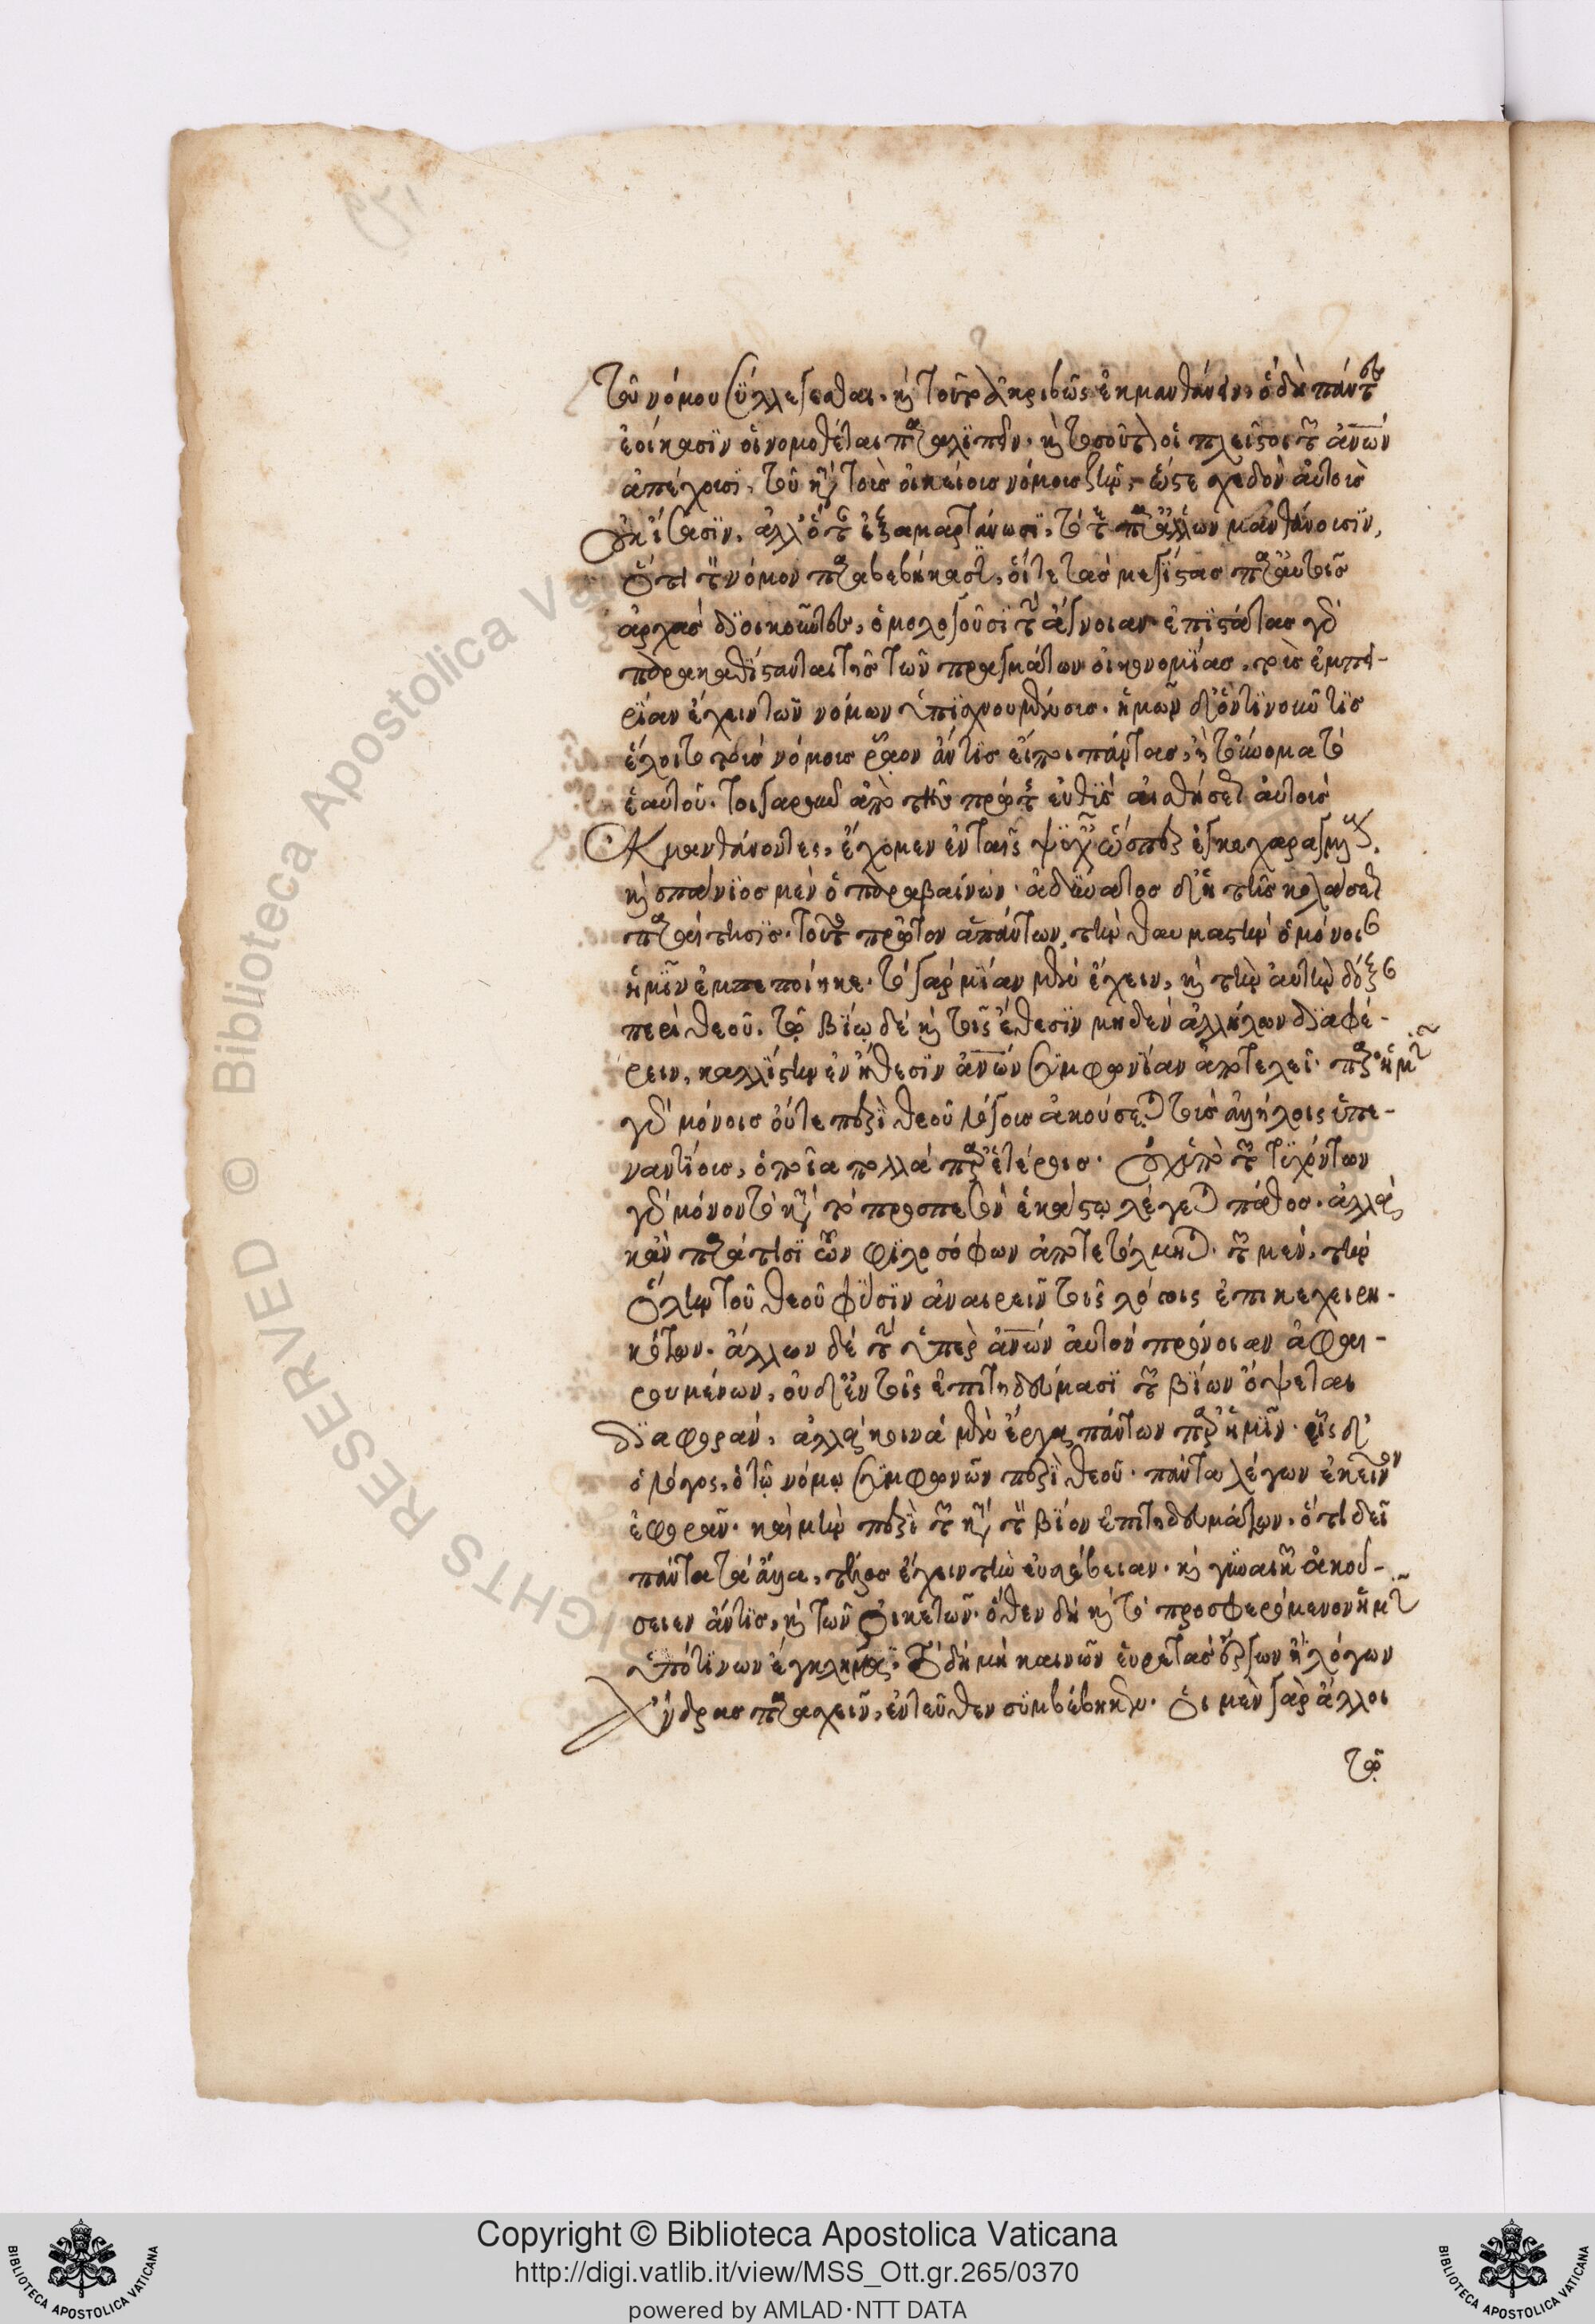 τοῦ νόμου συλλέγεσθαι. καὶ τοῦτον ἀκριβῶς ἐκμανθάνειν. ὃ δὴ πάντες
ἐοίκασϊν οἱ νομοθέται παραλϊπεῖν. καὶ τοσοῦτον οἱ πλεῖστοι τῶν ἀνων
ἀπέχουσϊ, τοῦ κατὰ τοὺς οἰκείους νόμους ζῆν, ὥστε σχεδὸν αὐτοὺς
οὐκ ἴσασϊν. ἀλλ' ὅταν ἐξαμαρτάνωσϊ, τότε παρ' ἄλλων μανθάνουσϊν,
ὅτι τὸν νόμον παραβεβήκασϊ, οἵ τε τὰς μεγίστας παρ' αὐτοῖς
ἀρχὰς δϊοικοῦντες, ὁμολογοῦσϊ τὴν ἄγνοιαν. ἐπϊστάτας γὰρ
παρακαθίστανται τῆς τῶν πραγμάτων οἰκονομίας, τοὺς ἐμπει-
ρίαν ἔχειν τῶν νόμων ὑπϊσχνουμένους. ἡμῶν δ' ὅντϊνοῦν τϊς
ἔροιτο τοὺς νόμους ῥᾷον ἄν τϊς εἴποι πάντας, ἢ τοὔνομα τὸ
ἑαυτοῦ. τοιγαροῦν ἀπὸ τῆς πρώτης εὐθὺς αἰσθήσεως αὐτοὺς
ἐκμανθάνοντες, ἔχομεν ἐν ταῖς ψυχαῖς ὥσπερ ἐγκεχαραγμένους.
καὶ σπάνϊος μὲν ὁ παραβαίνων. ἀδύνατος δ' ἡ τῆς κολάσεως
παραίτησϊς. τοῦτο πρῶτον ἁπάντων, τὴν θαυμαστὴν ὁμόνοιαν
ἡμῖν ἐμπεποίηκε. τὸ γὰρ μίαν μὲν ἔχειν, καὶ τὴν αὐτὴν δόξαν
περὶ θεοῦ. τῷ βίῳ δὲ καὶ τοῖς ἔθεσϊν μηδὲν ἀλλήλων δϊαφέ-
ρειν, καλλίστην ἐν ἤθεσϊν ἀνων συμφωνίαν ἀποτελεῖ. παρ' ἡμῖν
γὰρ μόνοις οὔτε περὶ θεοῦ λόγους ἀκούσεται τοὺς ἀλλήλοις ὑπε-
ναντίους, ὁποῖα πολλὰ παρ' ἑτέροις. οὐχ ὑπὸ τῶν τυχόντων
γὰρ μόνον τὸ κατὰ τὸ προσπεσὸν ἑκάστῳ λέγεται πάθος. ἀλλὰ
κἀν παρά τισϊ τῶν φϊλοσόφων ἀποτετόλμηται. τῶν μὲν, τὴν
ὅλην τοῦ θεοῦ φύσϊν ἀναιρεῖν τοῖς λόγοις ἐπικεχειρη-
κότων. ἄλλων δὲ τὴν ὑπὲρ ἀνων αὐτὸν πρόνοιαν ἀφαι-
ρουμένων, οὐδ' ἐν τοῖς ἐπιτηδεύμασϊ τῶν βίων ὄψεται
δϊαφοράν. ἀλλὰ κοινὰ μὲν ἔργα πάντων παρ' ἡμῖν. εἷς δ'
ὁ λόγος, ὁ τῷ νόμῳ συμφωνῶν περὶ θεοῦ. πάντα λέγων ἐκεῖνον
ἐφορᾶν. καὶ μὴν περὶ τῶν κατὰ τὸν βίον ἐπιτηδευμάτων. ὅτι δεῖ
πάντα τἄλλα, τέλος ἔχειν τὴν εὐσέβειαν. καὶ γυναικῶν ἀκού-
σειεν ἄν τϊς, καὶ τῶν οἰκετῶν. ὅθεν δὴ καὶ τὸ προσφερόμενον ἡμῖν
ὑπό τϊνων ἔγκλημα. τὸ δὴ μὴ καινῶν εὑρετὰς ἔργων ἢ λόγων
ἄνδρας παρασχεῖν, ἐντεῦθεν συμβέβηκεν. οἱ μὲν γὰρ ἄλλοι
τῷ
Copyright © Biblioteca Apostolica Vaticana
http://digi.vatlib.it/view/MSS_Ott.gr.265/0370
powered by AMLAD·NTT DATA